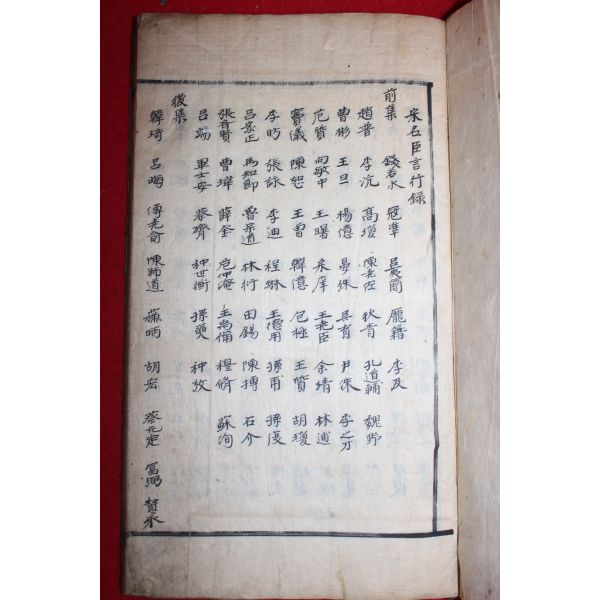 宋名臣言行録
前集 錢若水 冦準 呂夷簡 龐籍 李及
趙普 李沆 高瓊 陳尭佐 狄青 孔道輔 魏野
曹彬 王旦 楊億 晏殊 吳育 尹洙 李之才
范質 向敏中 王曙 宋庠 王尭臣 余靖 林逋
竇儀 陳恕 王曽 韓億 包極 王質 胡瓊
李昉 張詠 李迪 程琳 王德用 孫甫 孫復
呂蒙正 馬知節 魯宗道 林衍 田錫 陳摶 石介
張齊賢 曹瑋 薛奎 范仲淹 王禹偁 穆脩 蘇洵
呂端 畢士安 蔡齊 种世衡 孫奭 种放
後集
韓琦 呂晦 傅尭俞 陳師道 蘇昞 胡宏 蔡元定 富弼